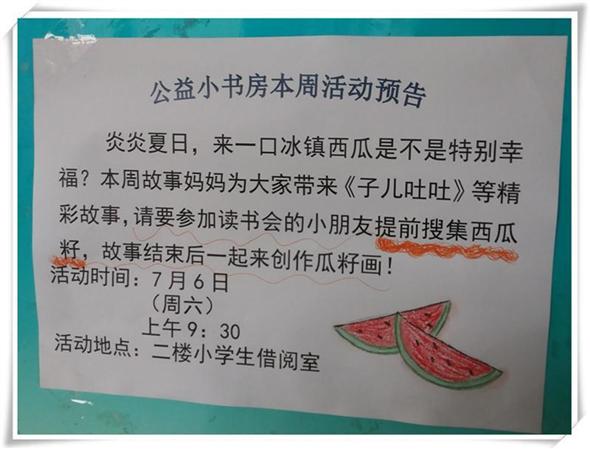 公益小书房本周活动预告
炎炎夏日，来一口冰镇西瓜是不是特别幸
福？本周故事妈妈为大家带来《子儿吐吐》等精
彩故事,请要参加读书会的小朋友提前搜集西瓜
籽，故事结束后一起来创作瓜籽画！
活动时间：7月6日
（周六）
上午9：30
活动地点：二楼小学生借阅室